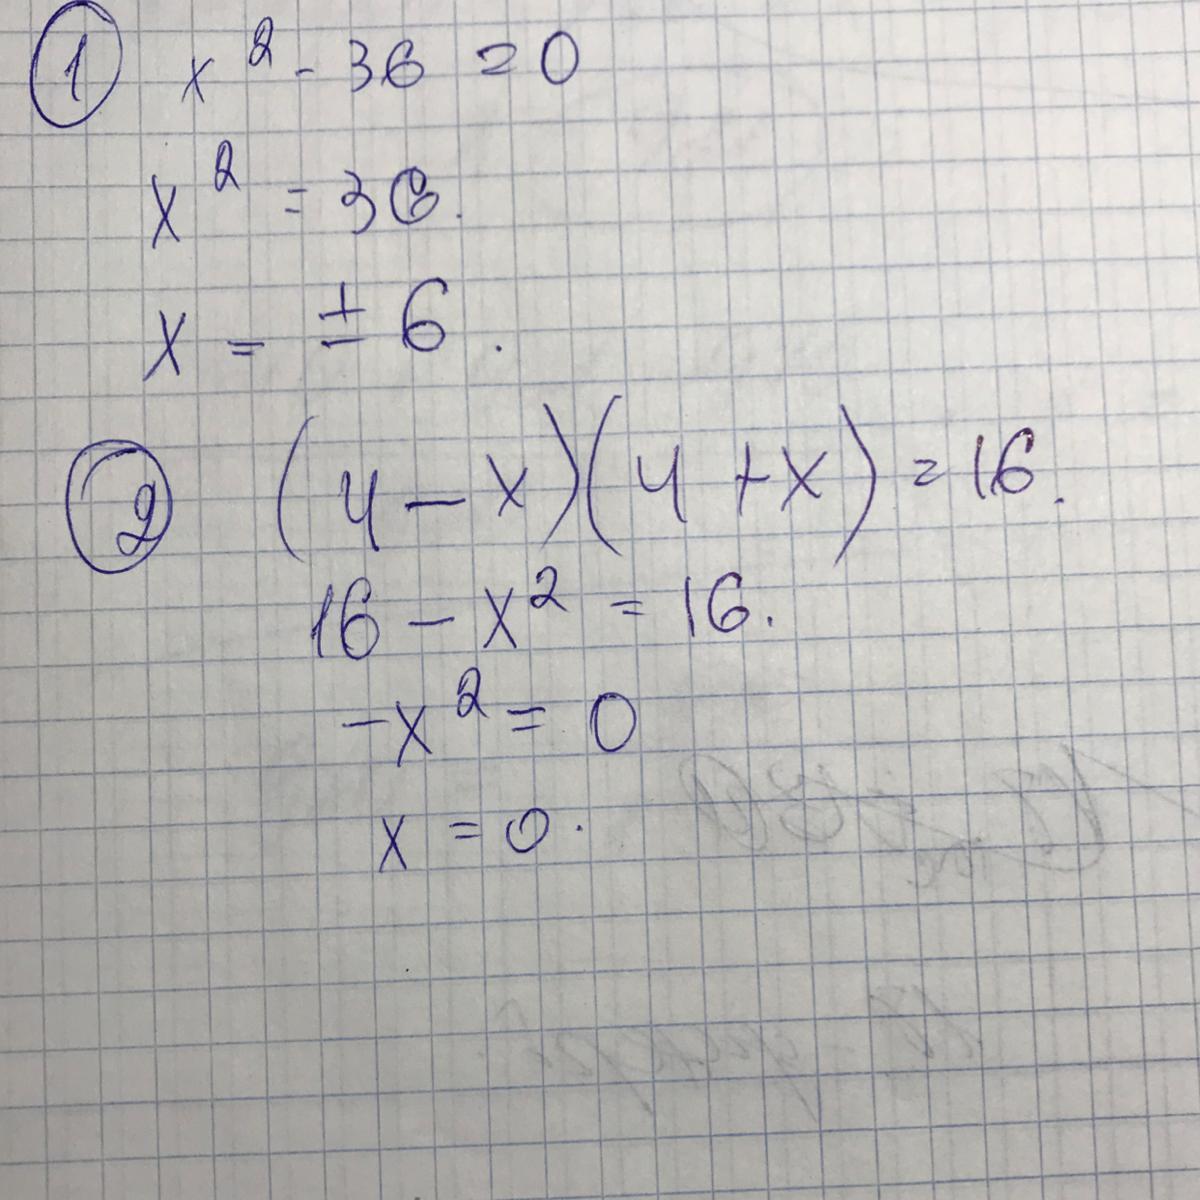 1 x² - 36 = 0
x² = 36.
x = ± 6.
2 (4 - x)(4 + x) = 16.
16 - x² = 16.
-x² = 0
x = 0.